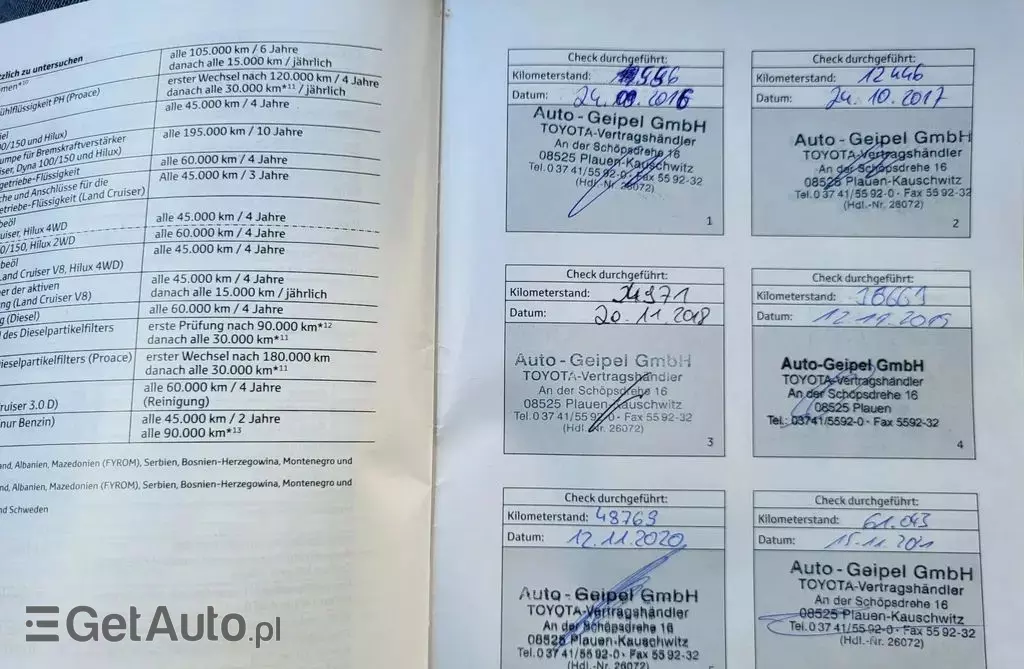 zlich zu untersuchen
men*¹⁰
alle 105.000 km / 6 Jahre
danach alle 15.000 km / jährlich
ühlflüssigkeit PH (Proace)
erster Wechsel nach 120.000 km / 4 Jahre
danach alle 30.000 km*¹¹ / jährlich
alle 45.000 km / 4 Jahre
iel
00/150 und Hilux)
umpe für Bremskraftverstärker
iser, Dyna 100/150 und Hilux)
alle 195.000 km / 10 Jahre
getriebe-Flüssigkeit
alle 60.000 km / 4 Jahre
che und Anschlüsse für die
etriebe-Flüssigkeit (Land Cruiser)
Alle 45.000 km / 3 Jahre
beöl
uiser, Hilux 4WD
alle 45.000 km / 4 Jahre
0/150, Hilux 2WD
alle 60.000 km / 4 Jahre
beöl
and Cruiser V8, Hilux 4WD)
alle 45.000 km / 4 Jahre
er der aktiven
ng (Land Cruiser V8)
alle 45.000 km / 4 Jahre
danach alle 15.000 km / jährlich
g (Diesel)
alle 60.000 km / 4 Jahre
des Dieselpartikelfilters
erste Prüfung nach 90.000 km*¹²
danach alle 30.000 km*¹¹
ieselpartikelfilters (Proace)
erster Wechsel nach 180.000 km
danach alle 30.000 km*¹¹
ruiser 3.0 D)
alle 60.000 km / 4 Jahre
(Reinigung)
nur Benzin)
alle 45.000 km / 2 Jahre
alle 90.000 km*¹³
and, Albanien, Mazedonien (FYROM), Serbien, Bosnien-Herzegowina, Montenegro und
nd, Albanien, Mazedonien (FYROM), Serbien, Bosnien-Herzegowina, Montenegro und
nd Schweden
Check durchgeführt:
Kilometerstand:
Datum: 24.09.2016
Auto - Geipel GmbH
TOYOTA-Vertragshändler
An der Schöpsdrehe 16
08525 Plauen-Kauschwitz
Tel. 0 37 41/55 92-0 · Fax 55 92-32
(Hdl.-Nr. 26072)
1
Check durchgeführt:
Kilometerstand: 12446
Datum: 24.10.2017
Auto - Geipel GmbH
TOYOTA-Vertragshändler
An der Schöpsdrehe 16
08525 Plauen-Kauschwitz
Tel. 0 37 41/55 92-0 · Fax 55 92-32
(Hdl.-Nr. 26072)
2
Check durchgeführt:
Kilometerstand: 24971
Datum: 20.11.2018
Auto - Geipel GmbH
TOYOTA-Vertragshändler
An der Schöpsdrehe 16
08525 Plauen-Kauschwitz
Tel. 0 37 41/55 92-0 · Fax 55 92-32
(Hdl.-Nr. 26072)
3
Check durchgeführt:
Kilometerstand:
Datum: 12.11.2019
Auto-Geipel GmbH
TOYOTA-Vertragshändler
An der Schöpsdrehe 16
08525 Plauen
Tel.: 03741/5592-0 · Fax 5592-32
4
Check durchgeführt:
Kilometerstand: 48769
Datum: 12.11.2020
Auto - Geipel GmbH
TOYOTA-Vertragshändler
An der Schöpsdrehe 16
08525 Plauen-Kauschwitz
Tel. 0 37 41/55 92-0 · Fax 55 92-32
(Hdl.-Nr. 26072)
Check durchgeführt:
Kilometerstand: 61.043
Datum: 15.11.2021
Auto - Geipel GmbH
TOYOTA-Vertragshändler
An der Schöpsdrehe 16
08525 Plauen-Kauschwitz
Tel. 0 37 41/55 92-0 · Fax 55 92-32
(Hdl.-Nr. 26072)
GetAuto.pl